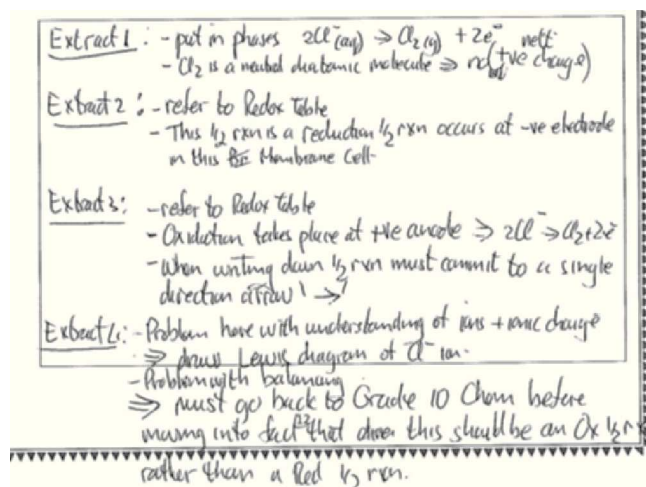 Extract 1: - put in phases 2Cl⁻(aq) ⇒ Cl₂(g) + 2e⁻
- Cl₂ is a neutral diatomic molecule ⇒ no nett (+ve charge)
Extract 2: - refer to Redox Table
- This ½ rxn is a reduction ½ rxn occurs at -ve electrode
in this Membrane Cell.
Extract 3: - refer to Redox Table
- Oxidation takes place at +ve anode ⇒ 2Cl⁻ → Cl₂ + 2e⁻
- When writing down ½ rxn must commit to a single
direction arrow '→'
Extract 4: - Problem here with understanding of ions + ionic charge
⇒ draw Lewis diagram of Cl⁻ ion.
- Problem with balancing
⇒ must go back to Grade 10 Chem before
moving into fact that this should be an Ox ½ rx
rather than a Red ½ rxn.